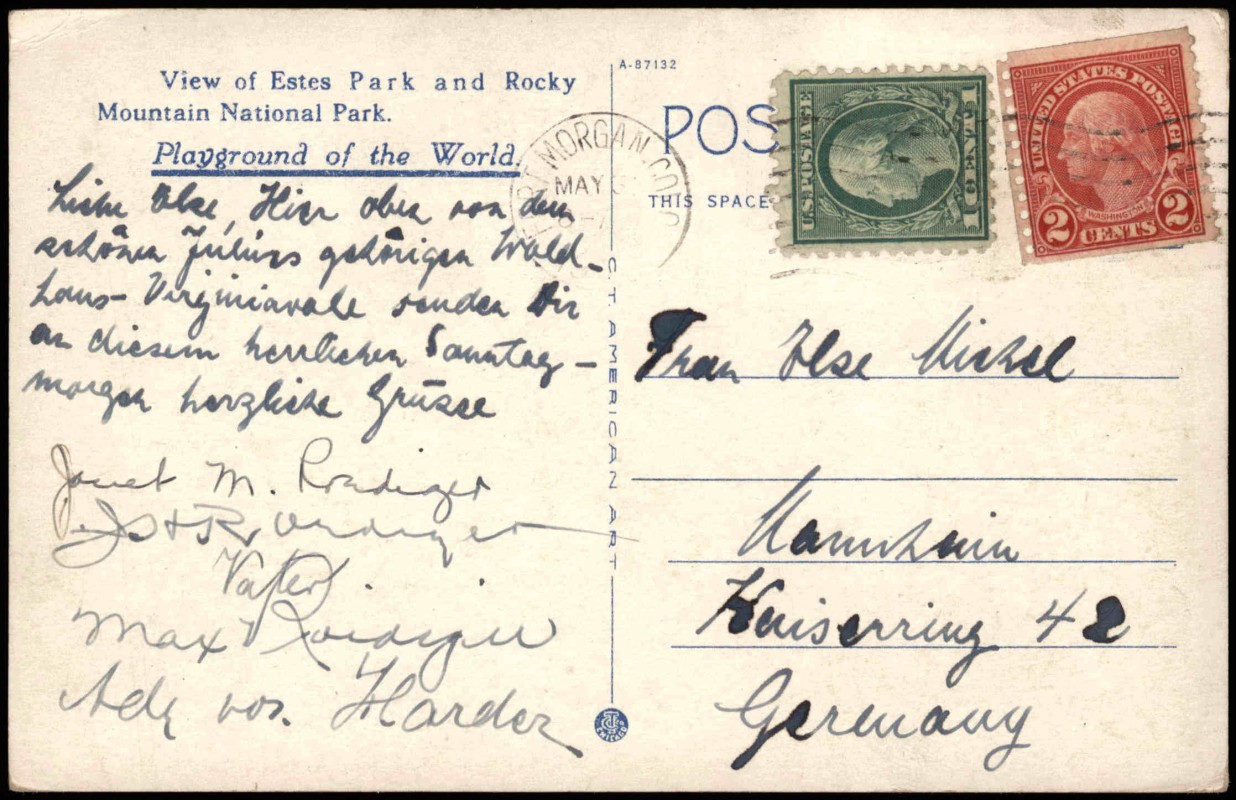 View of Estes Park and Rocky
Mountain National Park.
Playground of the World.
Liebe Ilse, Hier oben von dem
schönen Július gehörigen Wald-
haus- Virginiavale senden Dir
an diesem herrlichen Sonntag-
morgen herzliche Grüsse
Janet M. Roediger
Roediger
Vater
Max Roediger
Ady von Harder
A-87132
POS
THIS SPACE
C.T. AMERICAN ART
CHICAGO
MORGAN, COLO
MAY
U.S. POSTAGE
1 CENT 1
UNITED STATES POSTAGE
WASHINGTON
2 CENTS 2
Frau Ilse Michel
Mannheim
Kaiserring 42
Germany